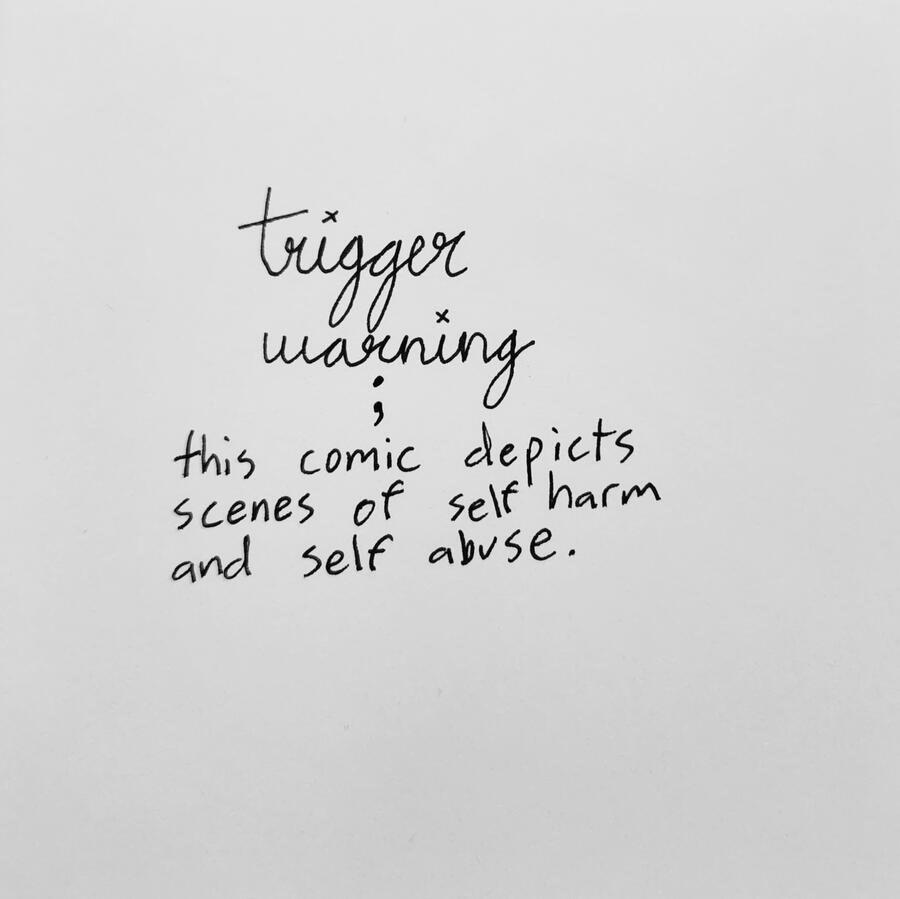 trigger
warning
;
this comic depicts
scenes of self harm
and self abuse.